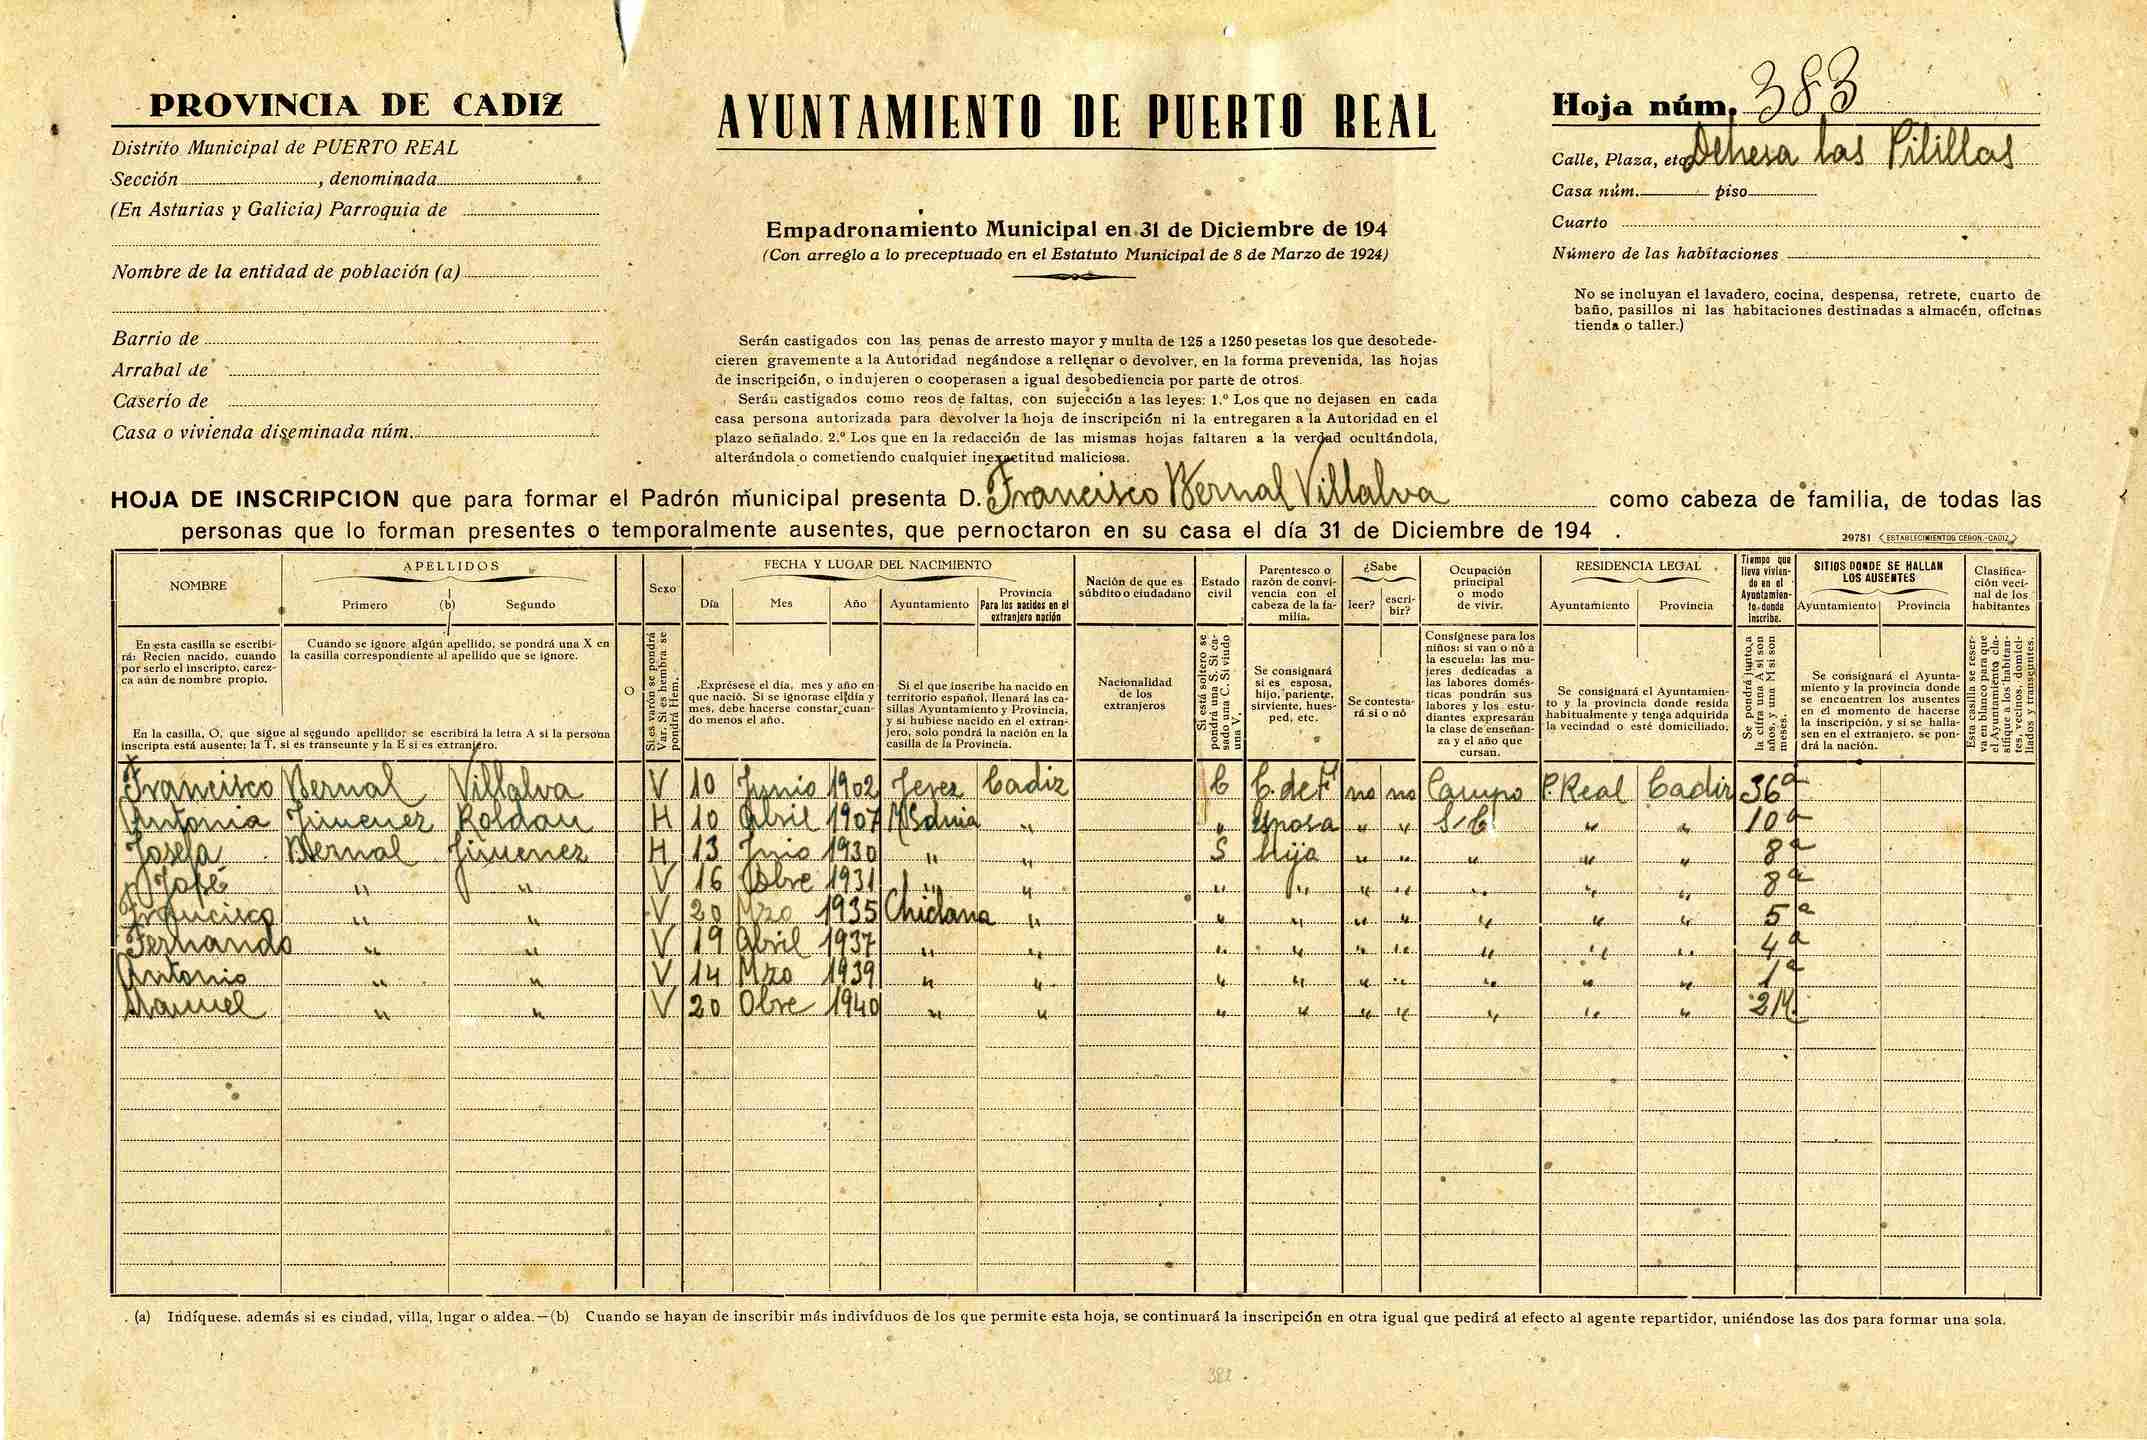 PROVINCIA DE CADIZ
Distrito Municipal de PUERTO REAL
Sección , denominada
(En Asturias y Galicia) Parroquia de
Nombre de la entidad de población (a)
Barrio de
Arrabal de
Caserío de
Casa o vivienda diseminada núm.
AYUNTAMIENTO DE PUERTO REAL
Empadronamiento Municipal en 31 de Diciembre de 194
(Con arreglo a lo preceptuado en el Estatuto Municipal de 8 de Marzo de 1924)
Serán castigados con las penas de arresto mayor y multa de 125 a 1250 pesetas los que desobede-
cieren gravemente a la Autoridad negándose a rellenar o devolver, en la forma prevenida, las hojas
de inscripción, o indujeren o cooperasen a igual desobediencia por parte de otros.
Serán castigados como reos de faltas, con sujección a las leyes: 1.º Los que no dejasen en cada
casa persona autorizada para devolver la hoja de inscripción ni la entregaren a la Autoridad en el
plazo señalado. 2.º Los que en la redacción de las mismas hojas faltaren a la verdad ocultándola,
alterándola o cometiendo cualquier inexactitud maliciosa.
Hoja núm. 383
Calle, Plaza, etc. Dehesa las Pilillas
Casa núm. piso
Cuarto
Número de las habitaciones
No se incluyan el lavadero, cocina, despensa, retrete, cuarto de
baño, pasillos ni las habitaciones destinadas a almacén, oficinas
tienda o taller.)
HOJA DE INSCRIPCION que para formar el Padrón municipal presenta D. Francisco Bernal Villalva como cabeza de familia, de todas las
personas que lo forman presentes o temporalmente ausentes, que pernoctaron en su casa el día 31 de Diciembre de 194 .
29781 (ESTABLECIMIENTOS CERON.-CADIZ)
NOMBRE
APELLIDOS
Primero (b) Segundo
Sexo
FECHA Y LUGAR DEL NACIMIENTO
Día Mes Año Ayuntamiento
Provincia
Para los nacidos en el
extranjero nación
Nación de que es
súbdito o ciudadano
Estado
civil
Parentesco o
razón de convi-
vencia con el
cabeza de la fa-
milia.
¿Sabe
leer? escri-
bir?
Ocupación
principal
o modo
de vivir.
RESIDENCIA LEGAL
Ayuntamiento Provincia
Tiempo que
lleva vivien-
do en el
Ayuntamien-
to donde
inscribe.
SITIOS DONDE SE HALLAN
LOS AUSENTES
Ayuntamiento Provincia
Clasifica-
ción veci-
nal de los
habitantes
En esta casilla se escribi-
rá: Recien nacido, cuando
por serlo el inscripto, carez-
ca aún de nombre propio.
Cuando se ignore algún apellido, se pondrá una X en
la casilla correspondiente al apellido que se ignore.
En la casilla, O, que sigue al segundo apellido; se escribirá la letra A si la persona
inscripta está ausente; la T, si es transeunte y la E si es extranjero.
O
Si es varón se pondrá
Var. Si es hembra se
pondrá Hem.
Exprésese el día, mes y año en
que nació. Si se ignorase el día y
mes, debe hacerse constar cuan-
do menos el año.
Si el que inscribe ha nacido en
territorio español, llenará las ca-
sillas Ayuntamiento y Provincia,
y si hubiese nacido en el extran-
jero, solo pondrá la nación en la
casilla de la Provincia.
Nacionalidad
de los
extranjeros
Si está soltero se
pondrá una S. Si ca-
sado una C. Si viudo
una V.
Se consignará
si es esposa,
hijo, pariente,
sirviente, hues-
ped, etc.
Se contesta-
rá si o nó
Consígnese para los
niños: si van o nó a
la escuela: las mu-
jeres dedicadas a
las labores domés-
ticas pondrán sus
labores y los estu-
diantes expresarán
la clase de enseñan-
za y el año que
cursan.
Se consignará el Ayuntamien-
to y la provincia donde resida
habitualmente y tenga adquirida
la vecindad o esté domiciliado.
Se pondrá junto a
la cifra una A si son
años, y una M si son
meses.
Se consignará el Ayunta-
miento y la provincia donde
se encuentren los ausentes
en el momento de hacerse
la inscripción, y si se halla-
sen en el extranjero, se pon-
drá la nación.
Esta casilla se reser-
va en blanco para que
el Ayuntamiento cla-
sifique a los habitan-
tes, vecinos, domici-
liados y transeuntes.
Francisco Bernal Villalva V 10 Junio 1902 Jerez Cadiz C C. de Fª no no Campo P. Real Cadiz 36 a
Antonia Jimenez Roldan H 10 Abril 1907 M Sdnia " " Esposa " " S/C " " 10 a
Josefa Bernal Jimenez H 13 Jnio 1930 " " S hija " " " " " 8 a
José " " V 16 Obre 1931 " " " " " " " " " 8 a
Francisco " " V 20 Mzo 1935 Chiclana " " " " " " " " 5 a
Fernando " " V 19 Abril 1937 " " " " " " " " " 4 a
Antonio " " V 14 Mzo 1939 " " " " " " " " " 1 a
Manuel " " V 20 Obre 1940 " " " " " " " " " 2 M.
(a) Indíquese. además si es ciudad, villa, lugar o aldea.—(b) Cuando se hayan de inscribir más indivíduos de los que permite esta hoja, se continuará la inscripción en otra igual que pedirá al efecto al agente repartidor, uniéndose las dos para formar una sola.